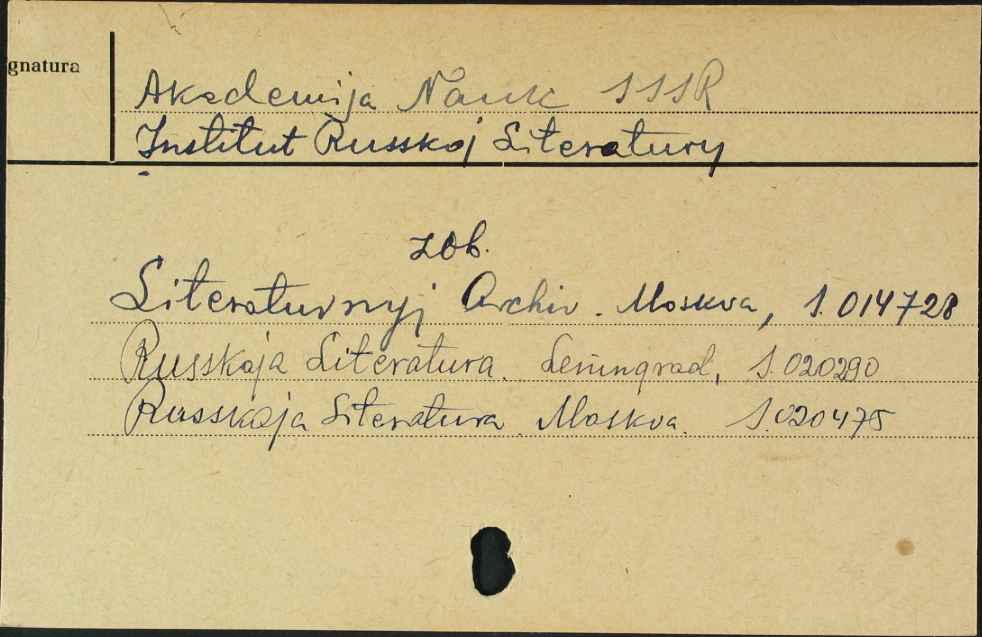 gnatura
Akademija Nauk SSSR
Institut Russkoj Literatury
zob.
Literaturnyj Archiv. Moskva, S. 014728
Russkaja Literatura. Leningrad, S. 020290
Russkaja Literatura. Moskva. S. 020475